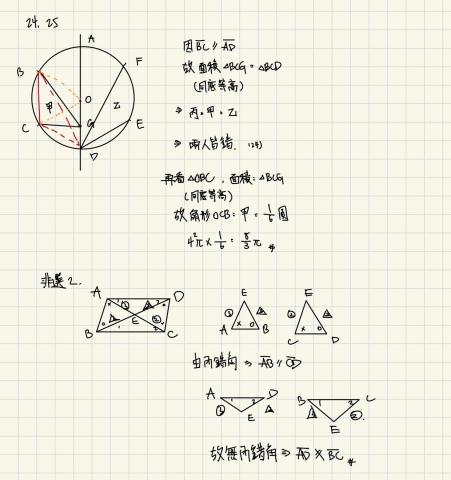 24. 25
A
B
F
O
甲
乙
G
C
E
D
因 BC // AD
故 面積 △BCG = △BCD
(同底等高)
⇒ 丙 = 甲 = 乙
⇒ 兩人皆錯
再看 △OBC, 面積 = △BCG
(同底等高)
故扇形 OCB = 甲 = 1/6 圓
4²π × 1/6 = 8/3 π #
非選 2.
A
D
E
B
C
E
A
B
E
C
D
由內錯角 ⇒ AB // CD
A
D
E
B
C
E
故無內錯角 ⇒ AD ∦ BC #